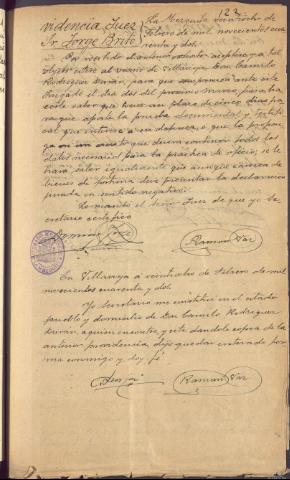 122
videncia Juez
Sr. Jorge Brito
La Mezquita veintiocho de
Febrero de mil novecientos cua
renta y dos.
Por recibido el anterior
cítese al vecino de Villavieja Don Camilo
Rodriguez Durán, para que comparezca ante este
Juzgado el día dos del próximo Marzo, para ha
cerle saber que tiene un plazo de cinco días para
que aporte la prueba documental y testifi
cal que interese a su defensa, o que la propon
ga en un escrito que deberá contener todos los
datos necesarios para la práctica de oficio; se le
hará saber igualmente que aunque carezca de
bienes de fortuna debe presentar la declaración
jurada en sentido negativo.
Lo mandó el señor Juez de que yo Se
cretario certifico
Ramón Paz
En Villavieja a veintiocho de Febrero de mil
novecientos cuarenta y dos.
Yo Secretario me constituí en el citado
pueblo y domicilio de Don Camilo Rodriguez
Durán, a quien encontré, y este dandole copia de la
anterior providencia, dijo quedar enterado, fir
ma conmigo y doy fé.
Ramón Paz